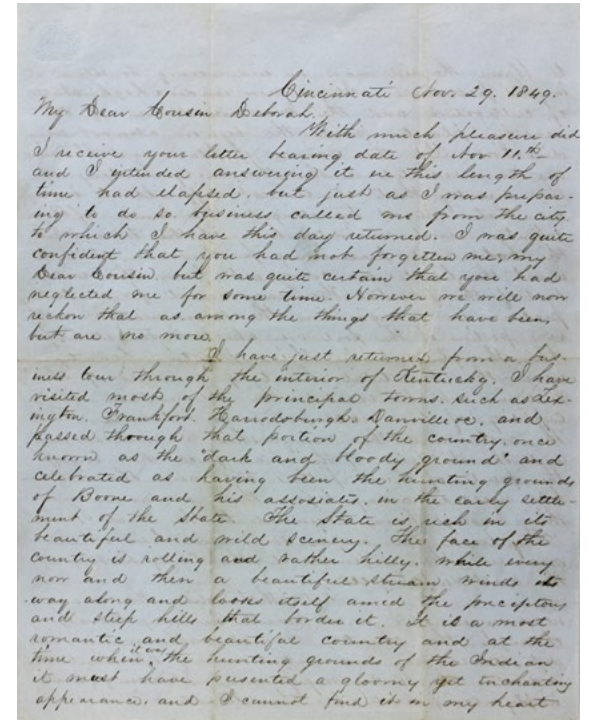 Cincinnati Nov. 29. 1849.
My Dear Cousin Deborah.
With much pleasure did
I receive your letter bearing date of Nov 11.th
and I intended answering it ere this length of
time had elapsed. but just as I was prepar-
ing to do so business called me from the city
to which I have this day returned. I was quite
confident that you had not forgotten me, my
Dear Cousin but was quite certain that you had
neglected me for some time. However we will now
reckon that as among the things that have been,
but are no more.
I have just returned from a bus-
iness tour through the interior of Kentucky. I have
visited most of the principal towns. such as Lex-
ington. Frankfort. Harrodsburgh. Danville, and
passed through that portion of the country. once
known as the "dark and bloody ground" and
celebrated as having been the hunting grounds
of Boone and his associates. in the early settle-
ment of the State. The State is rich in its
beautiful and wild scenery. The face of the
country is rolling and rather hilly. while every
now and then a beautiful stream winds its
way along and looses itself amid the precipitous
and steep hills that border it. It is a most
romantic and beautiful country and at the
time when it was the hunting grounds of the Indian
it must have presented a gloomy yet enchanting
appearance. and I cannot find it in my heart